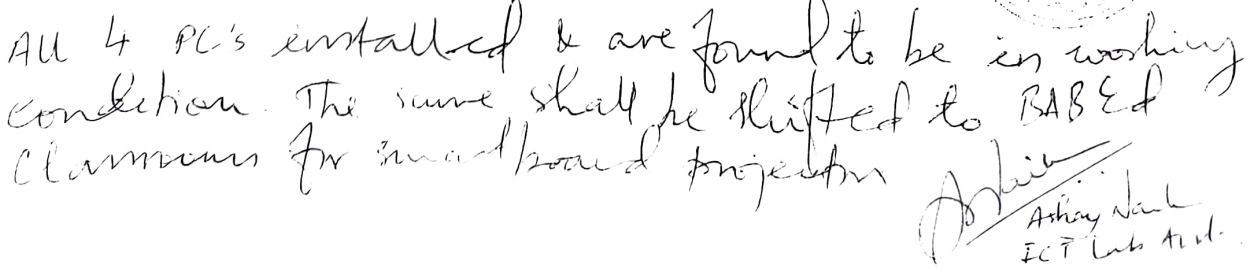 All 4 PC's installed & are found to be in working
condition. The same shall be shifted to BABEd
Classrooms for smartboard projector
Ashay Naik
ICT Lab